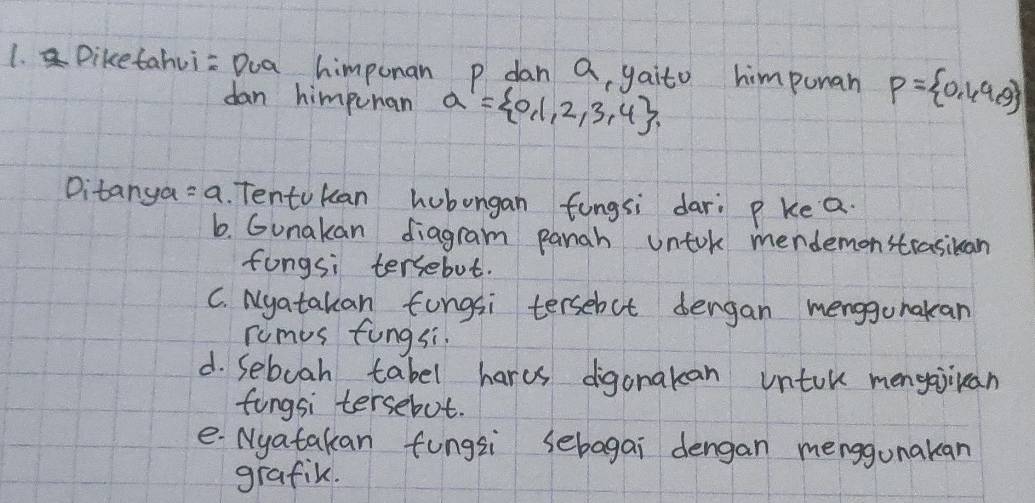 1. Diketahui = Dua himpunan P dan Q, yaitu himpunan P = {0,1,4,9}
dan himpunan Q = {0,1,2,3,4}.
Ditanya = a. Tentukan hubungan fungsi dari P ke Q.
b. Gunakan diagram panah untuk mendemonstrasikan
fungsi tersebut.
c. Nyatakan fungsi tersebut dengan menggunakan
rumus fungsi.
d. Sebuah tabel harus digunakan untuk menyajikan
fungsi tersebut.
e. Nyatakan fungsi sebagai dengan menggunakan
grafik.